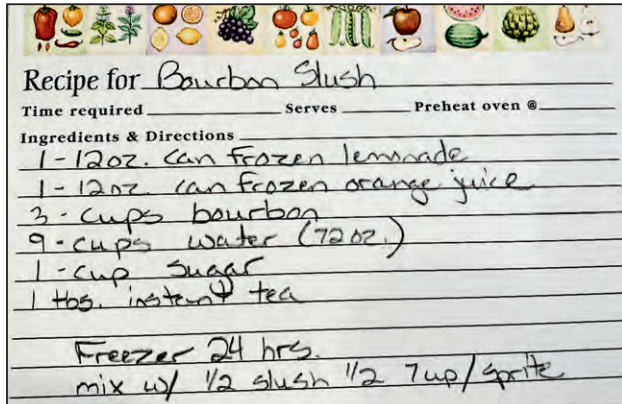 Recipe for Bourbon Slush
Time required Serves Preheat oven @
Ingredients & Directions
1 - 12oz. can frozen lemonade
1 - 12oz. can frozen orange juice
3 - cups bourbon
9 - cups water (72oz.)
1 - cup sugar
1 tbs. instant tea
Freezer 24 hrs.
mix w/ 1/2 slush 1/2 7up/sprite